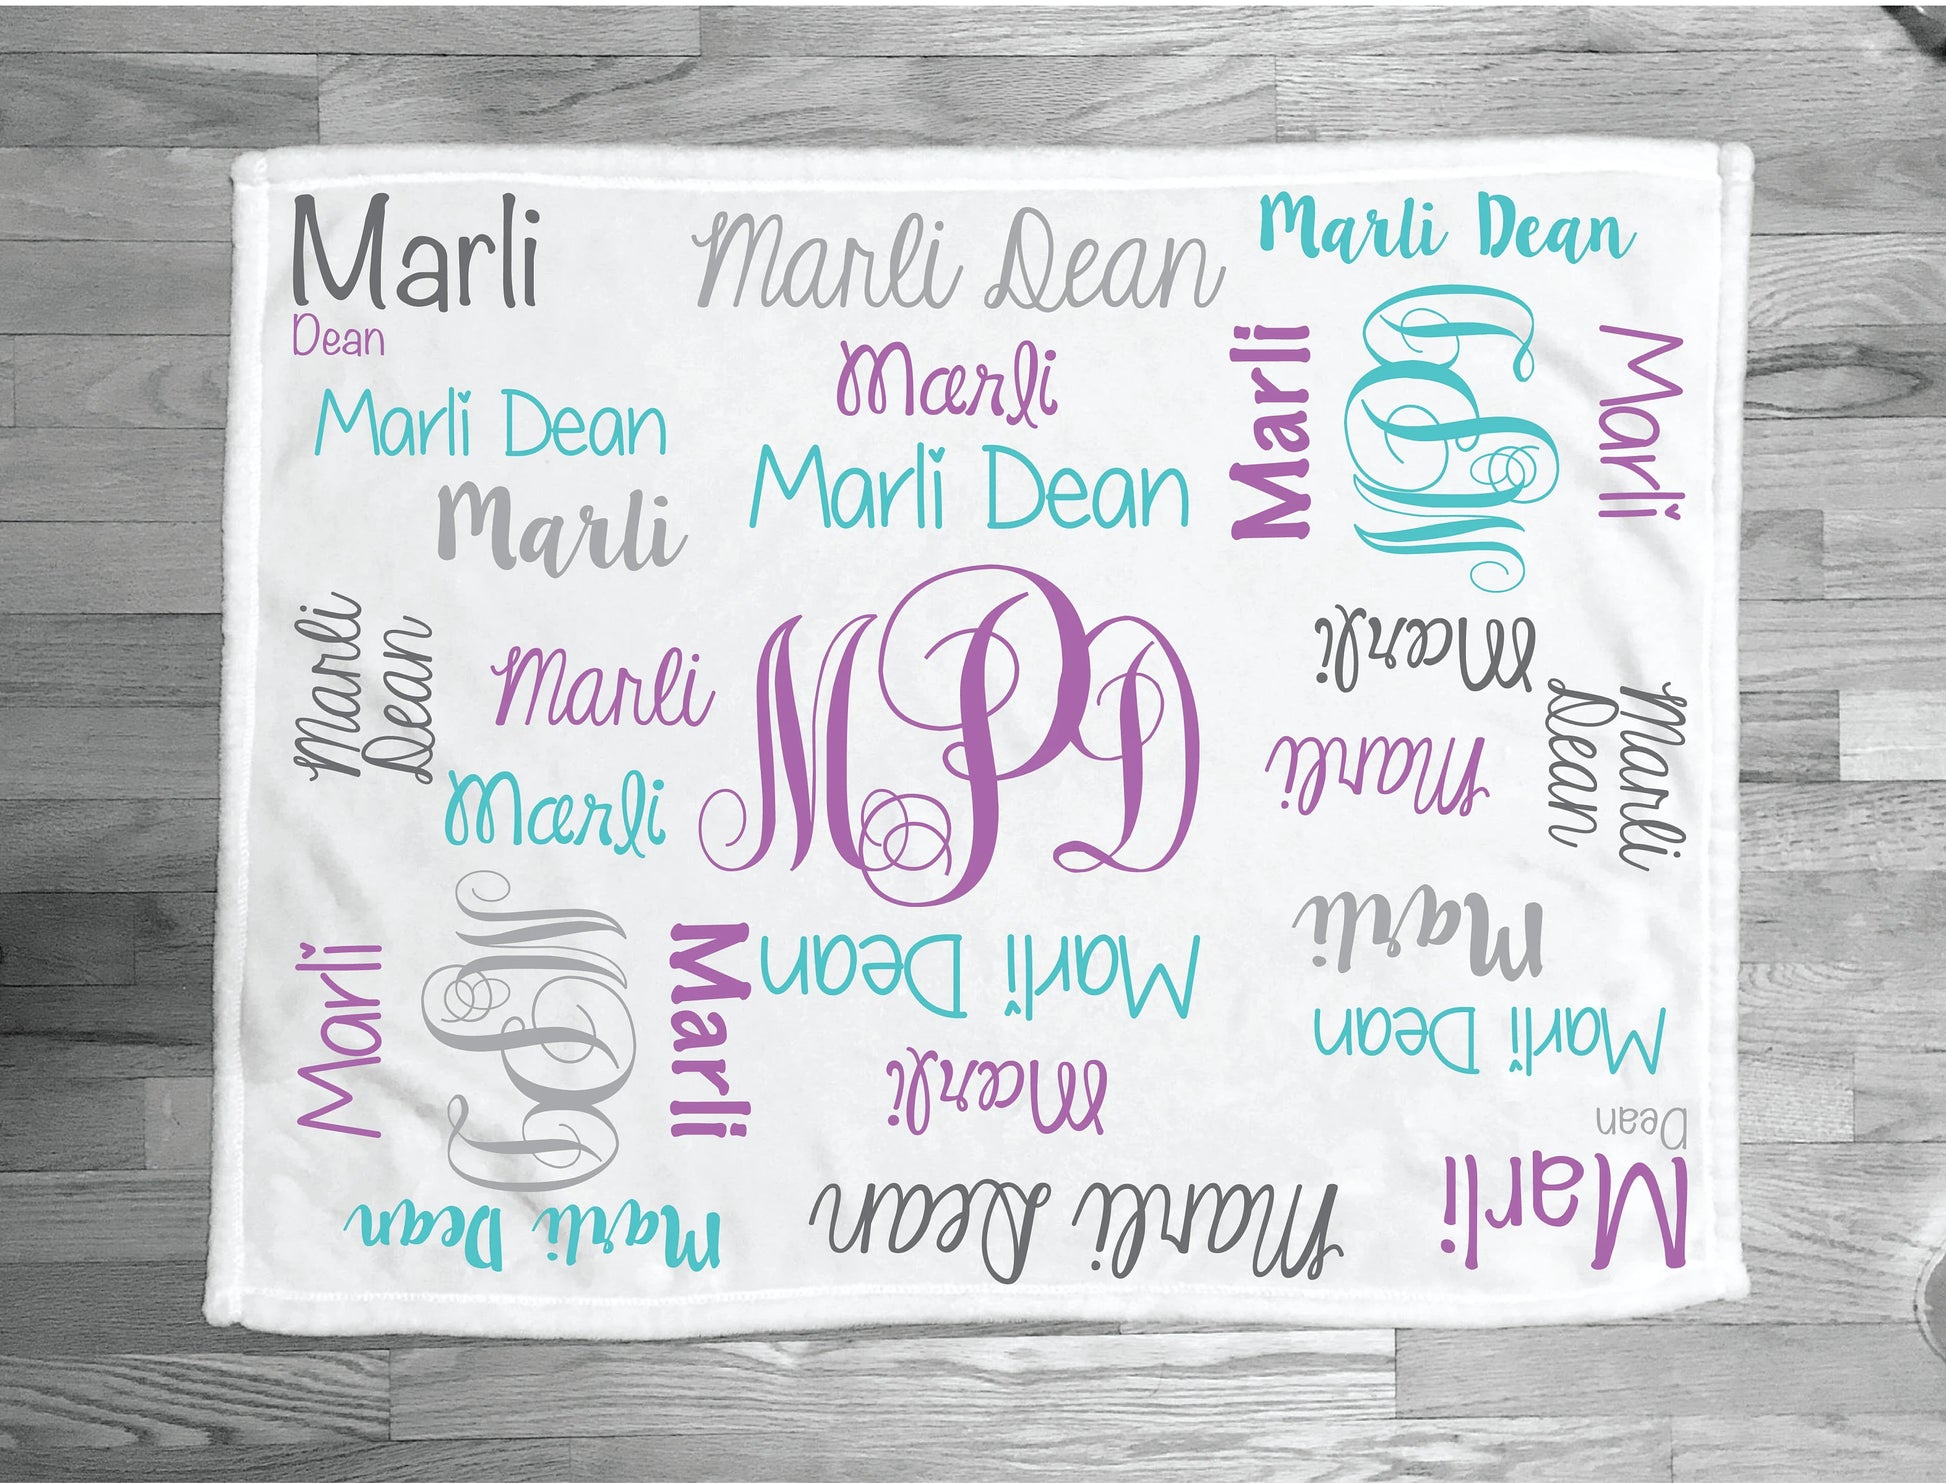 Marli
Dean
Marli Dean
Marli Dean
Marli
Marli Dean
Marli
Marli Dean
Marli
MPD
Marli
Marli
Dean
Marli
Marli
MPD
Marli
Marli
Marli
Dean
Marli
Marli
MPD
Marli
Marli Dean
Marli Dean
Marli
Marli Dean
Marli
Marli Dean
Dean
Marli